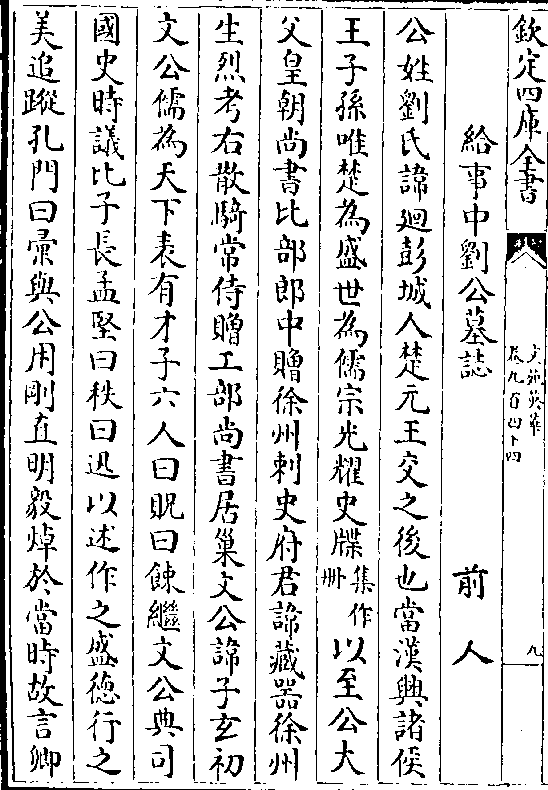 欽定四庫全書
文苑英華
卷九百四十四
九
給事中劉公墓誌 前人
公姓劉氏諱廻彭城人楚元王交之後也當漢興諸侯
王子孫唯楚為盛世為儒宗光耀史牒集作冊以至公大
父皇朝尚書比部郎中贈徐州刺史府君諱藏器徐州
生烈考右散騎常侍贈工部尚書居巢文公諱子玄初
文公儒為天下表有才子六人曰貺曰餗繼文公典司
國史時議比子長孟堅曰秩曰迅以述作之盛德行之
美追蹤孔門曰彚與公用剛直明毅焯於當時故言卿